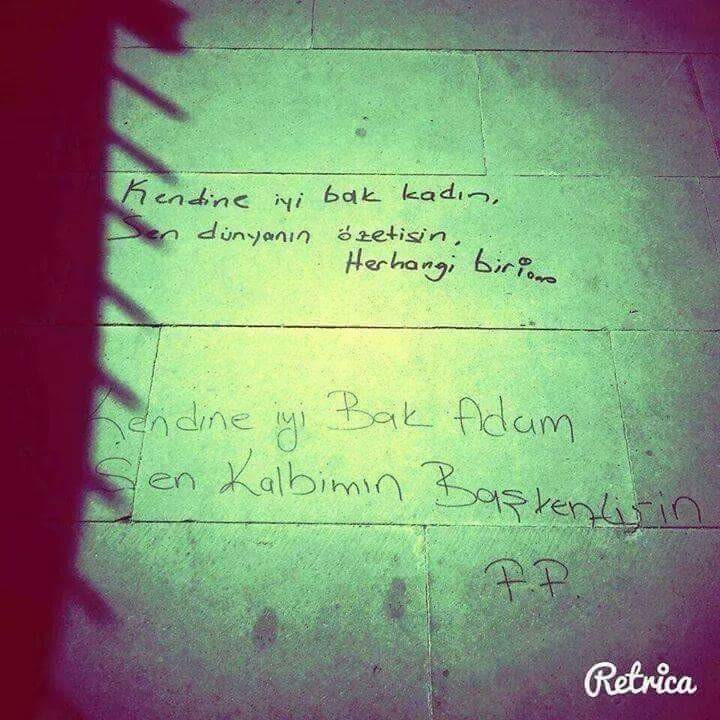 Kendine iyi bak kadın,
Sen dünyanın özetisin.
Herhangi biri...
Kendine iyi Bak Adam
Sen Kalbimin Başkentisin
P.P.
Retrica